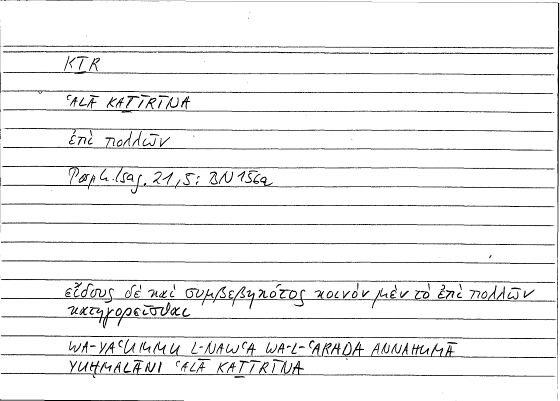 KṮR
ʿALĀ KAṮĪRĪNA
ἐπὶ πολλῶν
Porph. Isag. 21,5: BN 156a
εἴδους δὲ καὶ συμβεβηκότος κοινὸν μὲν τὸ ἐπὶ πολλῶν
κατηγορεῖσθαι
WA-YAʿUMMU L-NAWʿA WA-L-ʿARAḌA ANNAHUMĀ
YUḤMALĀNI ʿALĀ KAṮĪRĪNA